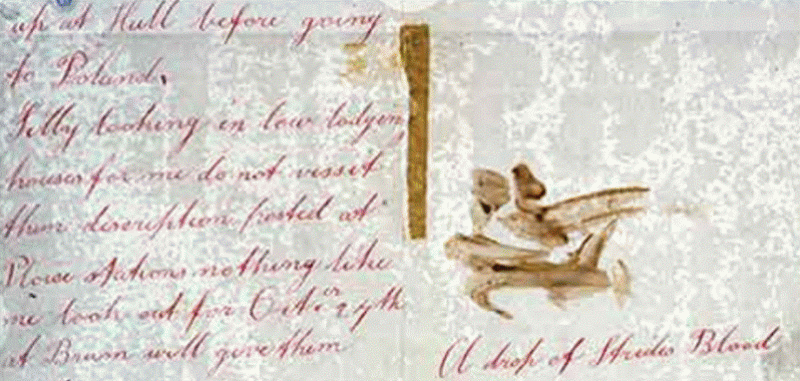 up at Hull before going
to Poland.
Silly looking in low lodgen
houses for me do not vissit
them description posted at
Plose stations nothing like
me look out for Octer 27th
at Brum will give them
A drop of Strides Blood